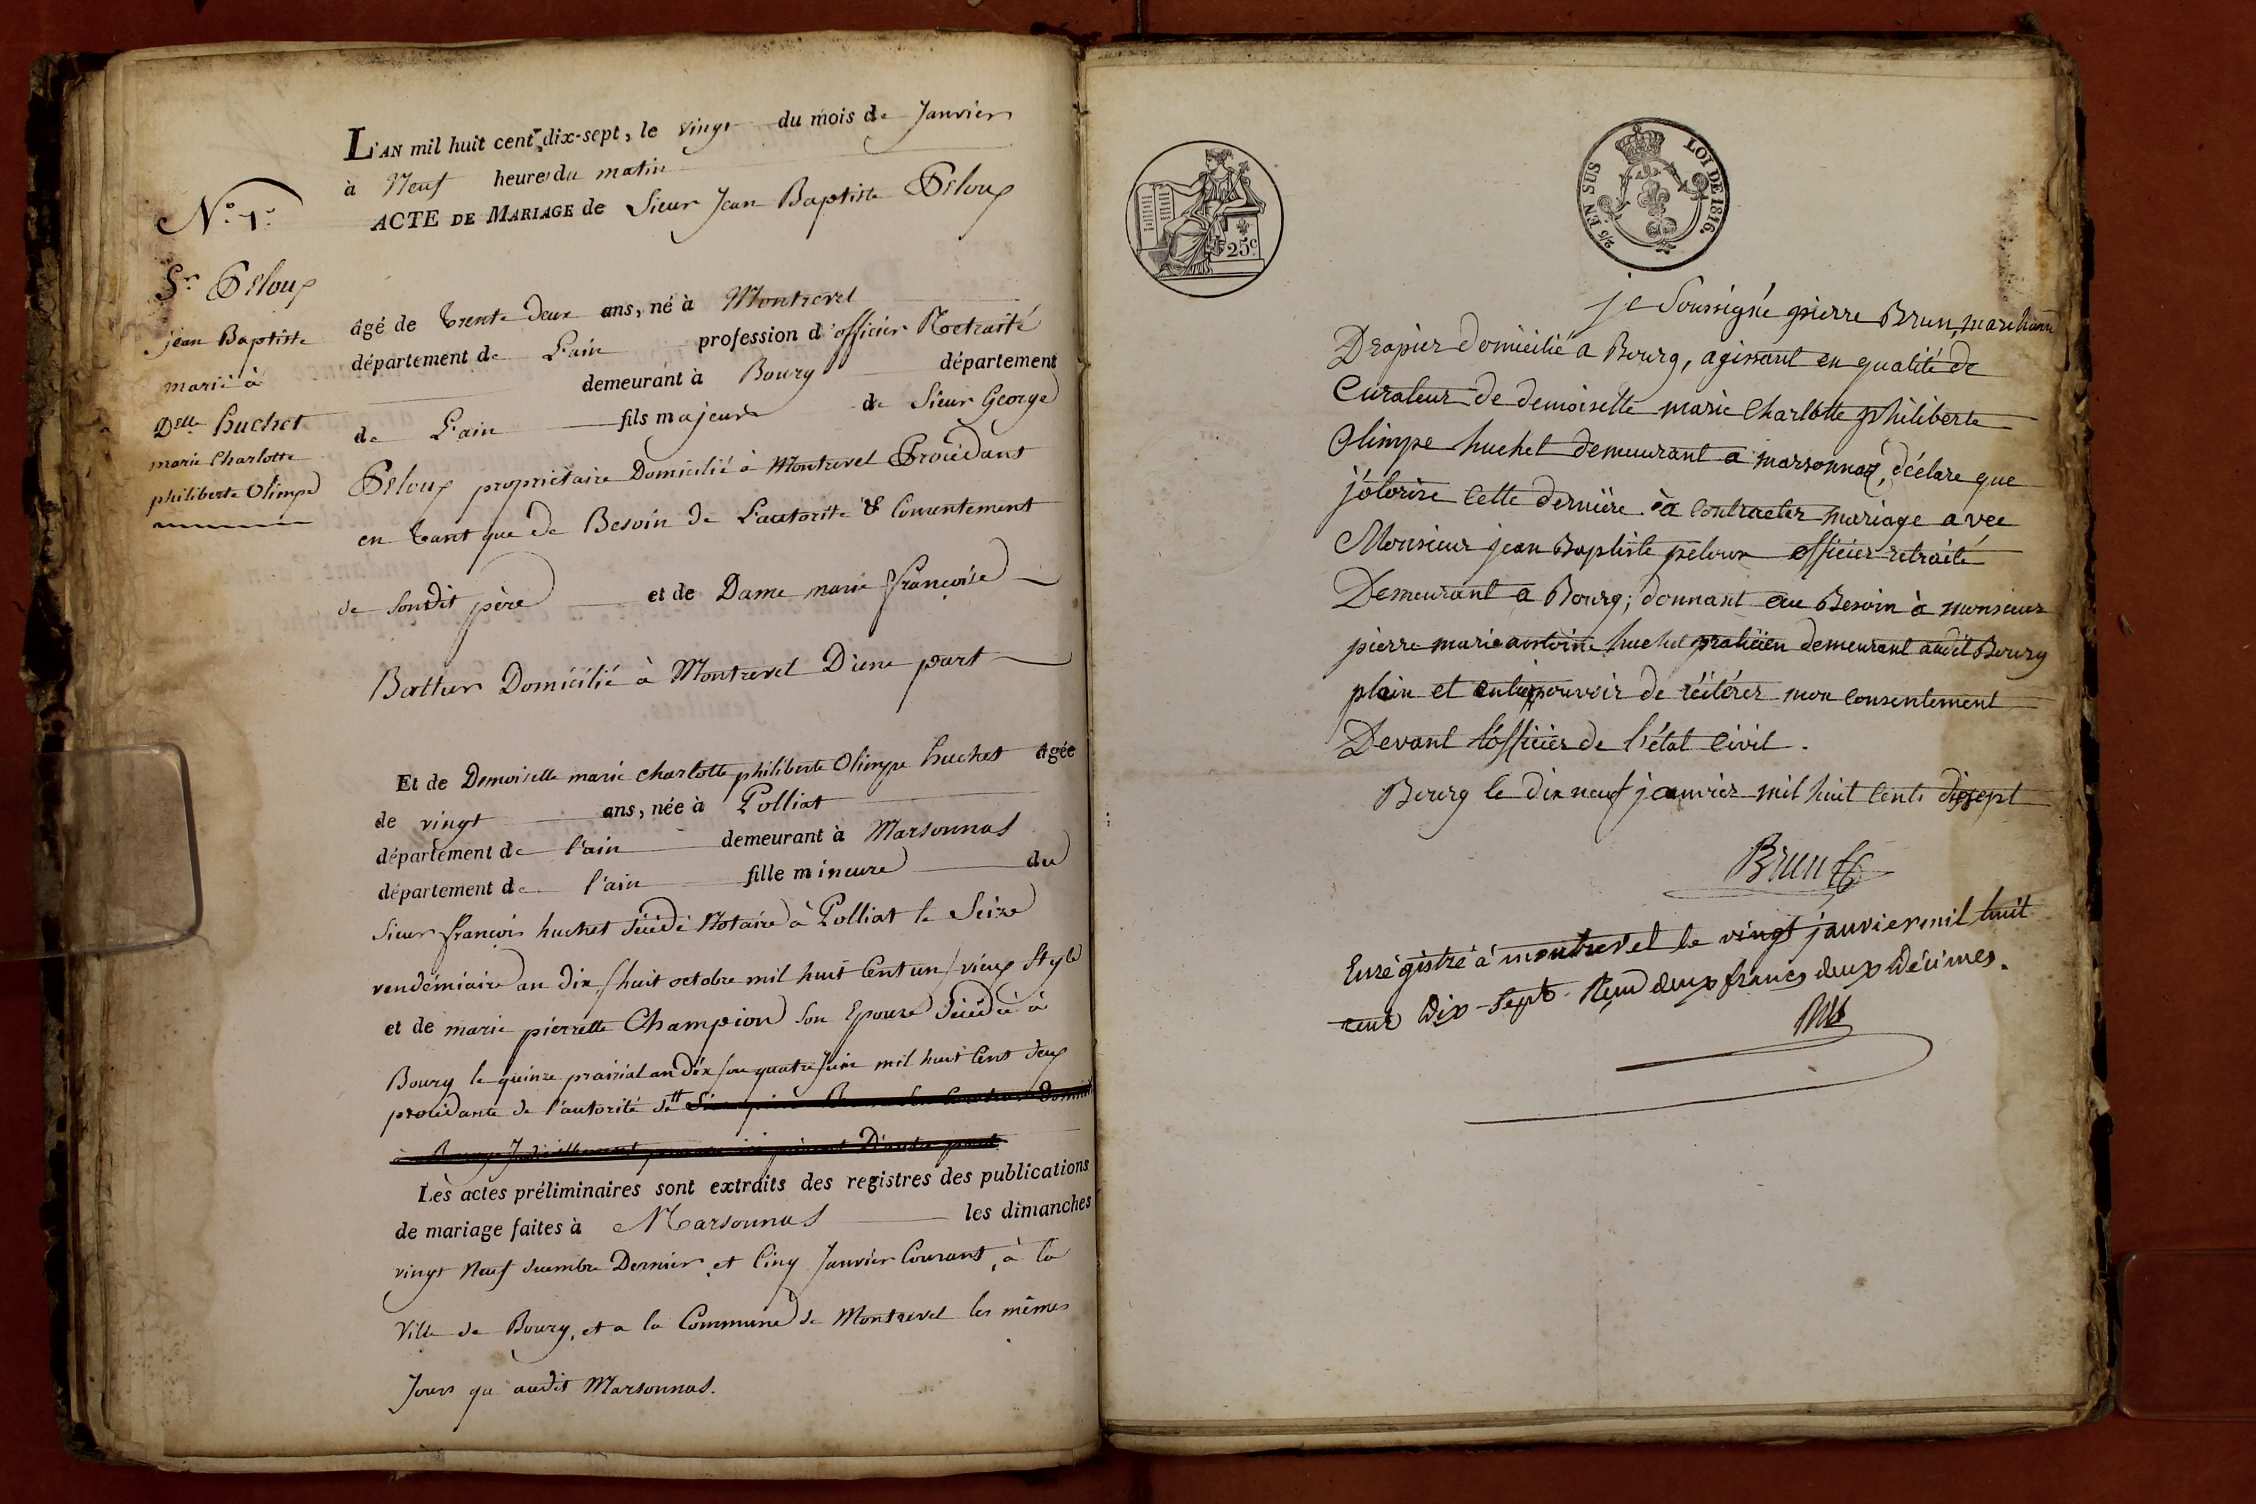 L'AN mil huit cent dix-sept, le vingt du mois de Janvier
à Neuf heures du matin
ACTE DE MARIAGE de Sieur Jean Baptiste Peloux
N.º 1.er
Sr Peloux
jean Baptiste
marié à
Delle huchet
marie Charlotte
philiberte Olimpe
âgé de trente deux ans, né à Montrevel
département de L'ain profession d'officier Retraité
demeurant à Bourg département
de L'ain fils majeur de Sieur George
Peloux propriétaire Domicilié à Montrevel Procédant
en tant que de Besoin de L'autorité & Consentement
de Sondit père et de Dame marie françoise
Domicilié à Montrevel D'une part
Et de Demoiselle marie charlotte philiberte Olimpe huchet âgée
de vingt ans, née à Polliat
département de l'ain demeurant à Marsonnas
département de l'ain fille mineure du
Sieur françois huchet décédé Notaire à Polliat le Seize
vendémiaire an dix / huit octobre mil huit Cent un / vieux Style
et de marie pierrette Champion Son Epouse décédée à
Bourg le quinze prairial an dix / ou quatre Juin mil huit Cent deux
procédante de l'autorité de
D'autre part
Les actes préliminaires sont extraits des registres des publications
de mariage faites à Marsonnas les dimanches
vingt Neuf décembre Dernier et Cinq Janvier Courant, à la
Ville de Bourg, et a la Commune de Montrevel les mêmes
Jours qu'audit Marsonnas.
25c
2/5 EN SUS
LOI DE 1816.
je Soussigné pierre Brun, marchand
Drapier domicilié a Bourg, agissant en qualité de
Curateur de demoiselle marie Charlotte philiberte
Olimpe huchet demeurant a marsonnas, déclare que
j'otorise cette dernière à Contracter mariage avec
Monsieur jean Baptiste peloux officier retraité
Demeurant a Bourg; donnant au Besoin à monsieur
pierre marie antoine huchet praticien demeurant audit Bourg
plein et entier pouvoir de réitérer mon Consentement
Devant l'officier de l'état Civil.
Bourg le dix neuf janvier mil huit Cents dix sept
Brun
Enrégistré à montrevel le vingt janvier mil huit
cent dix-sept. Reçu deux francs deux décimes.